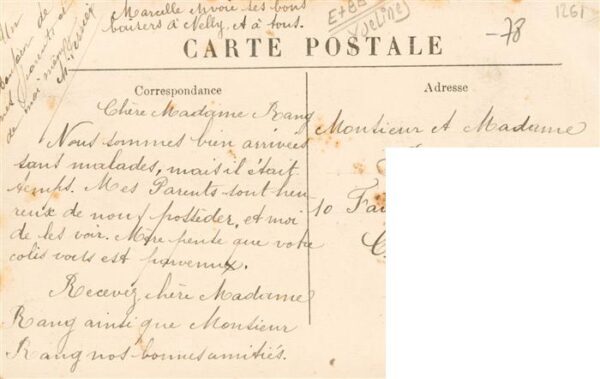 Marcelle envoie ses bons
baisers à Nelly, et à tous.
Un
de
parents et
de moi-même
E+BB
Yveline
-78
1261
CARTE POSTALE
Correspondance
Adresse
Chère Madame Rang
Nous sommes bien arrivées
sans malades, mais il était
temps. Mes Parents sont heu
reux de nous posséder, et moi
de les voir. Mère pense que votre
colis vous est parvenux.
Recevez chère Madame
Rang ainsi que Monsieur
Rang nos bonnes amitiés.
Monsieur et Madame
10